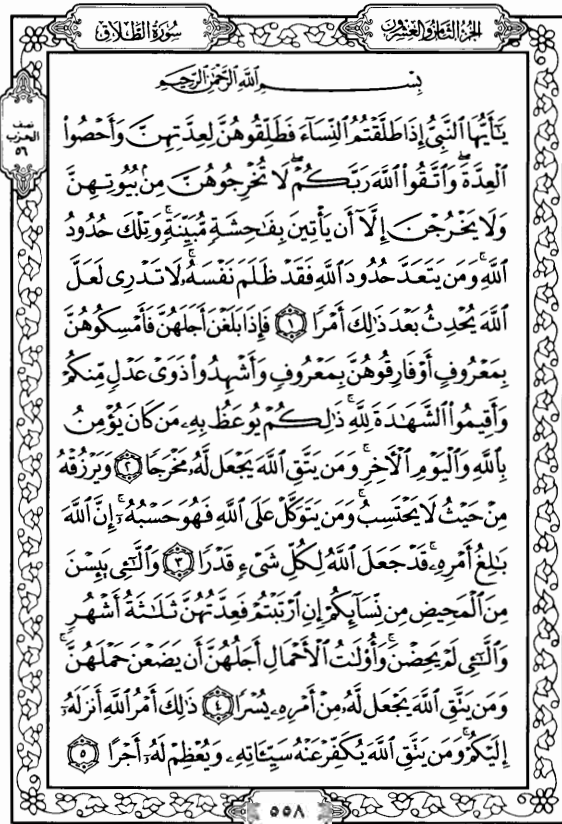 سُورَةُ الطَّلَاقِ
الجُزْءُ الثَّامِنُ وَالعِشْرُونَ
بِسْمِ اللَّهِ الرَّحْمَٰنِ الرَّحِيمِ
نصف
الحزب
٥٦
يَٰٓأَيُّهَا ٱلنَّبِيُّ إِذَا طَلَّقْتُمُ ٱلنِّسَآءَ فَطَلِّقُوهُنَّ لِعِدَّتِهِنَّ وَأَحْصُوا۟
ٱلْعِدَّةَ ۖ وَٱتَّقُوا۟ ٱللَّهَ رَبَّكُمْ ۖ لَا تُخْرِجُوهُنَّ مِنۢ بُيُوتِهِنَّ
وَلَا يَخْرُجْنَ إِلَّآ أَن يَأْتِينَ بِفَٰحِشَةٍ مُّبَيِّنَةٍ ۚ وَتِلْكَ حُدُودُ
ٱللَّهِ ۚ وَمَن يَتَعَدَّ حُدُودَ ٱللَّهِ فَقَدْ ظَلَمَ نَفْسَهُۥ ۚ لَا تَدْرِى لَعَلَّ
ٱللَّهَ يُحْدِثُ بَعْدَ ذَٰلِكَ أَمْرًا ١ فَإِذَا بَلَغْنَ أَجَلَهُنَّ فَأَمْسِكُوهُنَّ
بِمَعْرُوفٍ أَوْ فَارِقُوهُنَّ بِمَعْرُوفٍ وَأَشْهِدُوا۟ ذَوَىْ عَدْلٍ مِّنكُمْ
وَأَقِيمُوا۟ ٱلشَّهَٰدَةَ لِلَّهِ ۚ ذَٰلِكُمْ يُوعَظُ بِهِۦ مَن كَانَ يُؤْمِنُ
بِٱللَّهِ وَٱلْيَوْمِ ٱلْءَاخِرِ ۚ وَمَن يَتَّقِ ٱللَّهَ يَجْعَل لَّهُۥ مَخْرَجًا ٢ وَيَرْزُقْهُ
مِنْ حَيْثُ لَا يَحْتَسِبُ ۚ وَمَن يَتَوَكَّلْ عَلَى ٱللَّهِ فَهُوَ حَسْبُهُۥٓ ۚ إِنَّ ٱللَّهَ
بَٰلِغُ أَمْرِهِۦ ۚ قَدْ جَعَلَ ٱللَّهُ لِكُلِّ شَىْءٍ قَدْرًا ٣ وَٱلَّٰٓـِٔى يَئِسْنَ
مِنَ ٱلْمَحِيضِ مِن نِّسَآئِكُمْ إِنِ ٱرْتَبْتُمْ فَعِدَّتُهُنَّ ثَلَٰثَةُ أَشْهُرٍ
وَٱلَّٰٓـِٔى لَمْ يَحِضْنَ ۚ وَأُو۟لَٰتُ ٱلْأَحْمَالِ أَجَلُهُنَّ أَن يَضَعْنَ حَمْلَهُنَّ ۚ
وَمَن يَتَّقِ ٱللَّهَ يَجْعَل لَّهُۥ مِنْ أَمْرِهِۦ يُسْرًا ٤ ذَٰلِكَ أَمْرُ ٱللَّهِ أَنزَلَهُۥٓ
إِلَيْكُمْ ۚ وَمَن يَتَّقِ ٱللَّهَ يُكَفِّرْ عَنْهُ سَيِّـَٔاتِهِۦ وَيُعْظِمْ لَهُۥٓ أَجْرًا ٥
٥٥٨